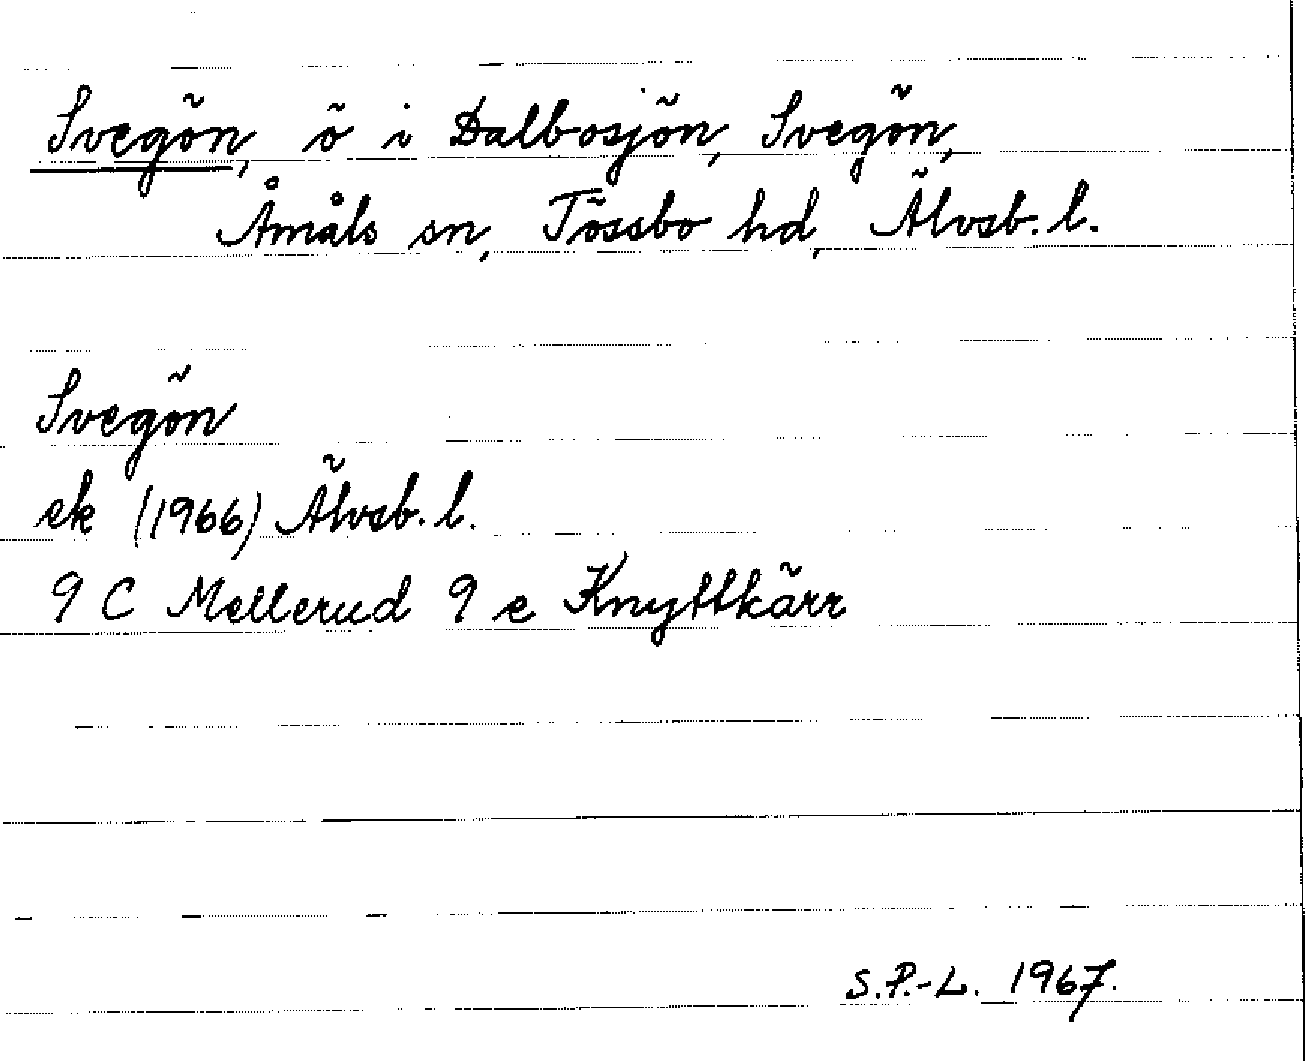 Svegön, ö i Dalbosjön, Svegön,
Åmåls sn, Tössbo hd, Älvsb. l.
Svegön
ek (1966) Älvsb. l.
9 C Mellerud 9 e Knyttkärr
S.P.-L. 1967.